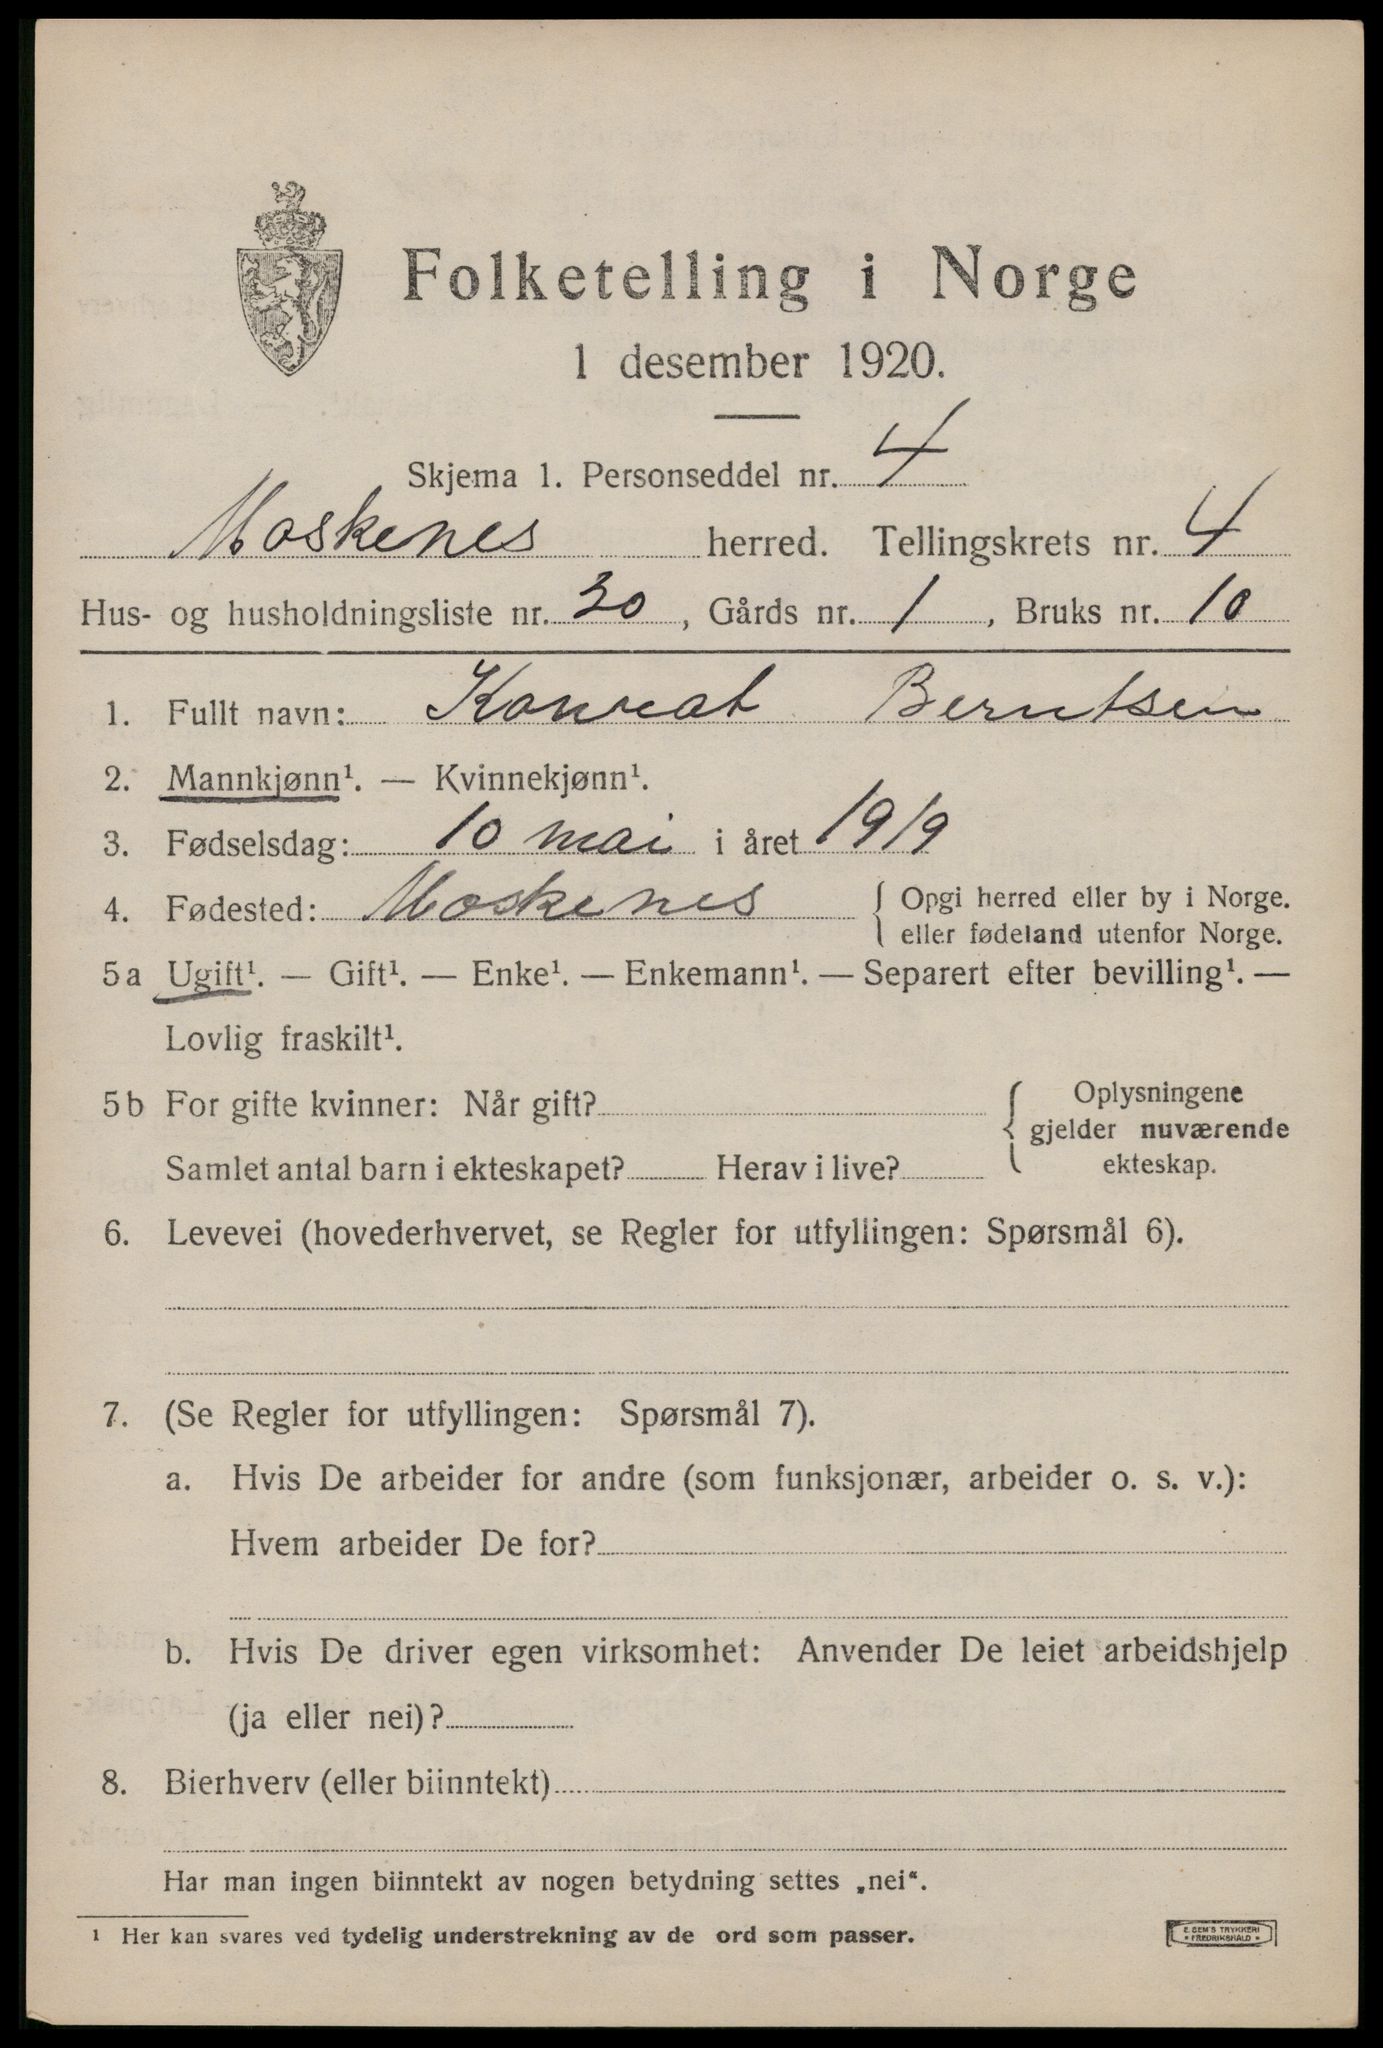 Folketelling i Norge
1 desember 1920.
Skjema 1. Personseddel nr. 4
Moskenes herred. Tellingskrets nr. 4
Hus- og husholdningsliste nr. 30, Gårds nr. 1, Bruks nr. 10
1. Fullt navn: Konrat Berntsen
2. Mannkjønn¹. — Kvinnekjønn¹.
3. Fødselsdag: 10 mai i året 1919
4. Fødested: Moskenes { Opgi herred eller by i Norge.
eller fødeland utenfor Norge.
5a Ugift¹. — Gift¹. — Enke¹. — Enkemann¹. — Separert efter bevilling¹. —
Lovlig fraskilt¹.
5b For gifte kvinner: Når gift? { Oplysningene
gjelder nuværende
Samlet antal barn i ekteskapet? Herav i live? ekteskap.
6. Levevei (hovederhvervet, se Regler for utfyllingen: Spørsmål 6).
7. (Se Regler for utfyllingen: Spørsmål 7).
a. Hvis De arbeider for andre (som funksjonær, arbeider o. s. v.):
Hvem arbeider De for?
b. Hvis De driver egen virksomhet: Anvender De leiet arbeidshjelp
(ja eller nei)?
8. Bierhverv (eller biinntekt)
Har man ingen biinntekt av nogen betydning settes „nei“.
1 Her kan svares ved tydelig understrekning av de ord som passer.
E. SEM'S TRYKKERI
* FREDRIKSHALD *